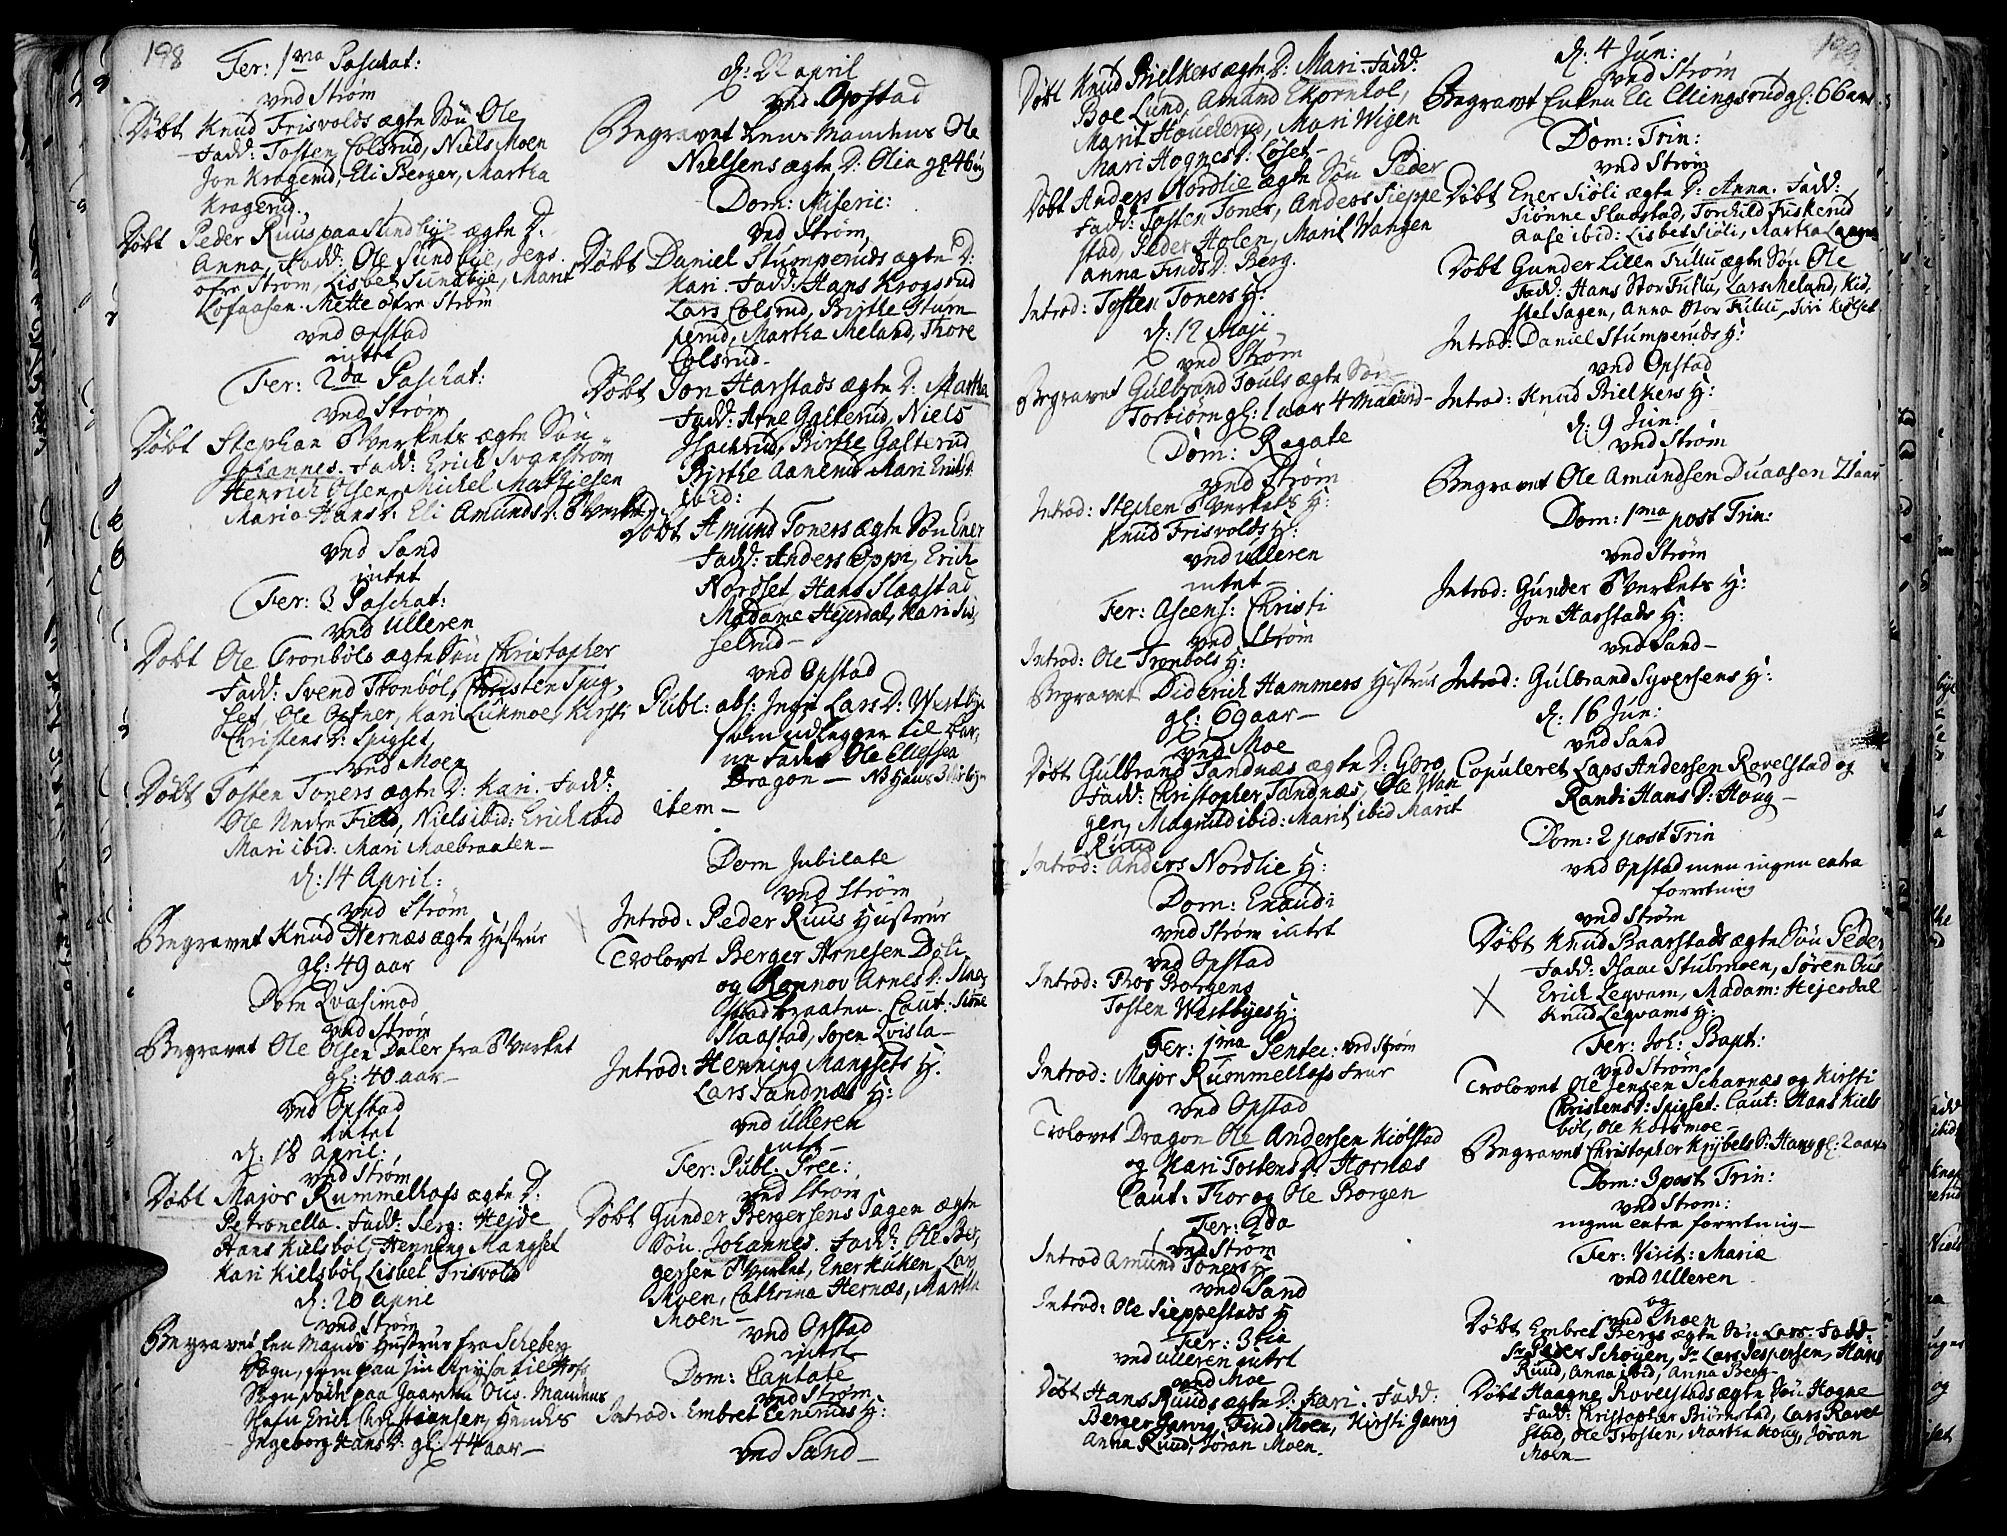 198
Fer: 1ma Paschat:
ved Strøm
Døbt Knud Frisvolds ægte Søn Ole
Fadd: Tosten Colsrud, Niels Moen
Jon Kragerud, Eli Berger, Martha
Kragerud.
Døbt Peder Ruus paa Sundbye ægte D:
Anna, Fadd: Ole Sundbye, Jens
øfre Strøm, Lisbet Sundbye, Marit
Lofaasen. Mette øfre Strøm
ved Opstad
intet
Fer: 2da Paschat:
ved Strøm
Døbt Stephan Verkets ægte Søn
Johannes. Fadd: Erich Svanstrøm
Henrich Olsen, Michel Mathiesen
Maria Hans D: Eli Amunds D: Verket
ved Sand
intet
Fer: 3 Paschat:
ved Ulleren
Døbt Ole Tronbøls ægte Søn Christopher
Fadd: Svend Tronbøl, Christen Spig,
set, Ole Opner, Kari Lukmoe, Kirsti
Christens D: Spigset
ved Moen
Døbt Tosten Toners ægte D: Kari. Fadd:
Ole Nedre Field, Niels ibid: Erich ibid
Mari ibid: Mari Moebraaten
d: 14 April:
ved Strøm
Begravet Knud Hernæs ægte Hustrue
gl: 49 aar
Dom Qvasimod
ved Strøm
Begravet Ole Olsen Daler fra Verket
gl: 40 aar
ved Opstad
intet
d: 18 April:
ved Strøm
Døbt Major Rummelhofs ægte D:
Petronella. Fadd: Serg: Hejde
Hans Kielsbøl, Henning Mangset
Kari Kielsbøl, Lisbet Frisvold
d: 20 April
ved Strøm
Begravet en Mands Hustrue fra Scheberg
Sogn, som paa sin Rejse til Hofs
Sogn døde paa Gaarden Ous. Mandens
Nafn Erich Christiansen, Hendes
Ingeborg Hans D: gl: 44 aar
d: 22 april
ved Opstad
Begravet Lens Mandens Ole
Nielsens ægte D: Olea gl: 46 ug
Dom: Miseric:
ved Strøm
Døbt Daniel Stumperuds ægte D:
Kari. Fadd: Hans Krogsrud
Lars Colsrud, Birthe Stum
perud, Martha Meland, Thore
Colsrud.
Døbt Jon Harstads ægte D: Martha
Fadd: Arne Galterud, Niels
Isachrud, Birthe Galterud
Birthe Aanerud Mari Erichs D:
ibid:
Døbt Amund Toners ægte Søn Ener
Fadd: Anders Oppi, Erich
Nordset, Hans Slaastad
Madame Hejerdal, Kari Sis
selrud
ved Opstad
Publ: abs: Ingri Lars D: Westbye
som udlegger til Bar,
ne Fader Ole Ellefsen
Dragon
item
Dom Jubilate
ved Strøm
Introd: Peder Ruus Hustrue
Trolovet Berger Arnesen Doli
og Rønnov Arnes D: Slaa,
stadbraaten. Caut: Siøne
Slaastad, Soren Qvisla
Introd: Henning Mangsets H:
Lars Sandnæs H:
ved Ulleren
intet
Fer: Publ: Prec:
ved Strøm
Døbt Gunder Bergersens Sagen ægte
Søn. Johannes. Fadd: Ole Ber,
gersen Verket, Ener Kuken, Lars
Moen, Cathrina Hernæs, Martha
Moen
ved Opstad
intet
Dom: Cantate
ved Strøm
Introd: Embret Eeneruds H:
ved Sand
199
Døbt Knud Bielkers ægte D: Mari. Fadd:
Boe Lund, Amund Ekornhol,
Marit Houelerud, Mari Wigen
Mari Hognes D: Løset
Døbt Anders Nordlie ægte Søn Peder
Fadd: Tosten Toner, Anders Sieppe
stad, Peder Holen, Marit Wangen
Anna Finds D: Berg.
Introd: Tosten Toners H:
d: 12 Maji
ved Strøm
Begravet Gulbrand Fouls ægte Søn
Torbiørn gl: 1 aar 4 Maaned
Dom: Rogate
ved Strøm
Introd: Stephen Verkets H:
Knud Frisvolds H:
ved Ulleren
intet
Fer: Ascens: Christi
ved Strøm
Introd: Ole Tronbøls H:
Begravet Diderich Hammers Hustrue
gl: 69 aar
ved Moe
Døbt Gulbrand Sandnæs ægte D: Goro
Fadd: Christopher Sandnæs, Ole Wan
gen, Magnild ibid: Marit ibid Marit
Ruud
Introd: Anders Nordlie H:
Dom: Exaudi:
ved Strøm intet
ved Opstad
Introd: Thor Borgens
Tosten Westbyes H:
Fer: 1ma Pentec: ved Strøm
Introd: Major Rummelhofs Frue
ved Opstad
Trolovet Dragon Ole Andersen Kiølstad
og Kari Tostens D: Hornæs
Caut: Thor og Ole Borgen
Fer: 2da
ved Strøm
Introd Amund Toners H:
ved Sand
Introd: Ole Sieppestads H
Fer: 3tia
ved Ulleren intet
ved Moe
Døbt Hans Ruuds ægte D: Kari. Fadd:
Berger Garvig, Find Moen, Kirsti Garvig
Anna Ruud, Jøran Moen.
d: 4 Jun:
ved Strøm
Begravet Enken Eli Ellingsrud gl: 66 aar
Dom: Trin:
ved Strøm
Døbt Ener Siøli ægte D: Anna. Fadd:
Siønne Slaastad, Torchild Fuskerud
Aase ibid: Lisbet Siøli, Martha Laagen
Døbt Gunder Lille Fullu ægte Søn Ole
Fadd: Hans Stor Fullu, Lars Meland, Kiø,
stel Sagen, Anna Stor Fullu, Siri Kiølset
Introd: Daniel Stumperuds H:
ved Opstad
Introd: Knud Bielkers H:
d: 9 Jun:
ved Strøm
Begravet Ole Amundsen Duaasen 21 aar
Dom: 1ma post Trin:
ved Strøm
Introd: Gunder Verkets H:
Jon Harstads H:
ved Sand
Introd: Gulbrand Syversens H:
d: 16 Jun:
ved Sand
Copuleret Lars Andersen Rovelstad og
Randi Hans D: Houg
Dom: 2 post Trin
ved Opstad men ingen extra
forretning
ved Strøm
Døbt Knud Baarstads ægte Søn Peder
Fadd: Isaac Stubmoen, Søren Ous
Erich Leqvam, Madam: Hejerdal
Knud Leqvams H:
Fer: Joh: Bapt:
ved Strøm
Trolovet Ole Jensen Scharnæs og Kirsti
Christens D: Spigset: Caut: Hans Kiels
bøl, Ole Korsmoe
Begravet Christopher Kiybels D: Hang gl: 2 aar
Dom: 3 post Trin:
ved Strøm:
ingen extra forretning
Fer: Visit: Mariæ
ved Ulleren
og
ved Moen
Døbt Embret Bergs ægte Søn Lars. Fadd:
Sr Peder Schøyen, Sr Lars Jespersen, Hans
Ruud, Anna ibid, Anna Berg
Døbt Haagne Rovelstads ægte Søn Hogne
Fadd: Christopher Biørnstad, Lars Ravel
stad, Ole Trosten, Martha Houg, Jøran
Moen